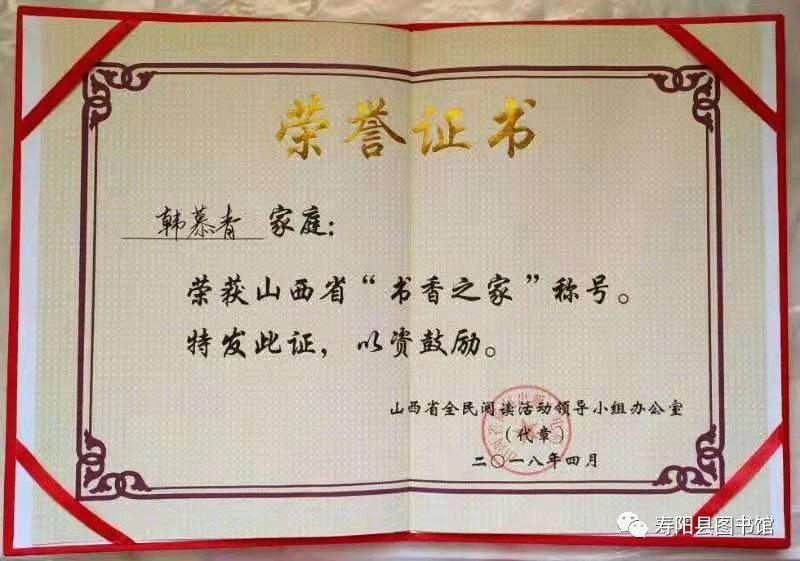 荣誉证书
韩慕青 家庭:
荣获山西省“书香之家”称号。
特发此证，以资鼓励。
山西省全民阅读活动领导小组办公室
（代章）
二〇一八年四月
寿阳县图书馆